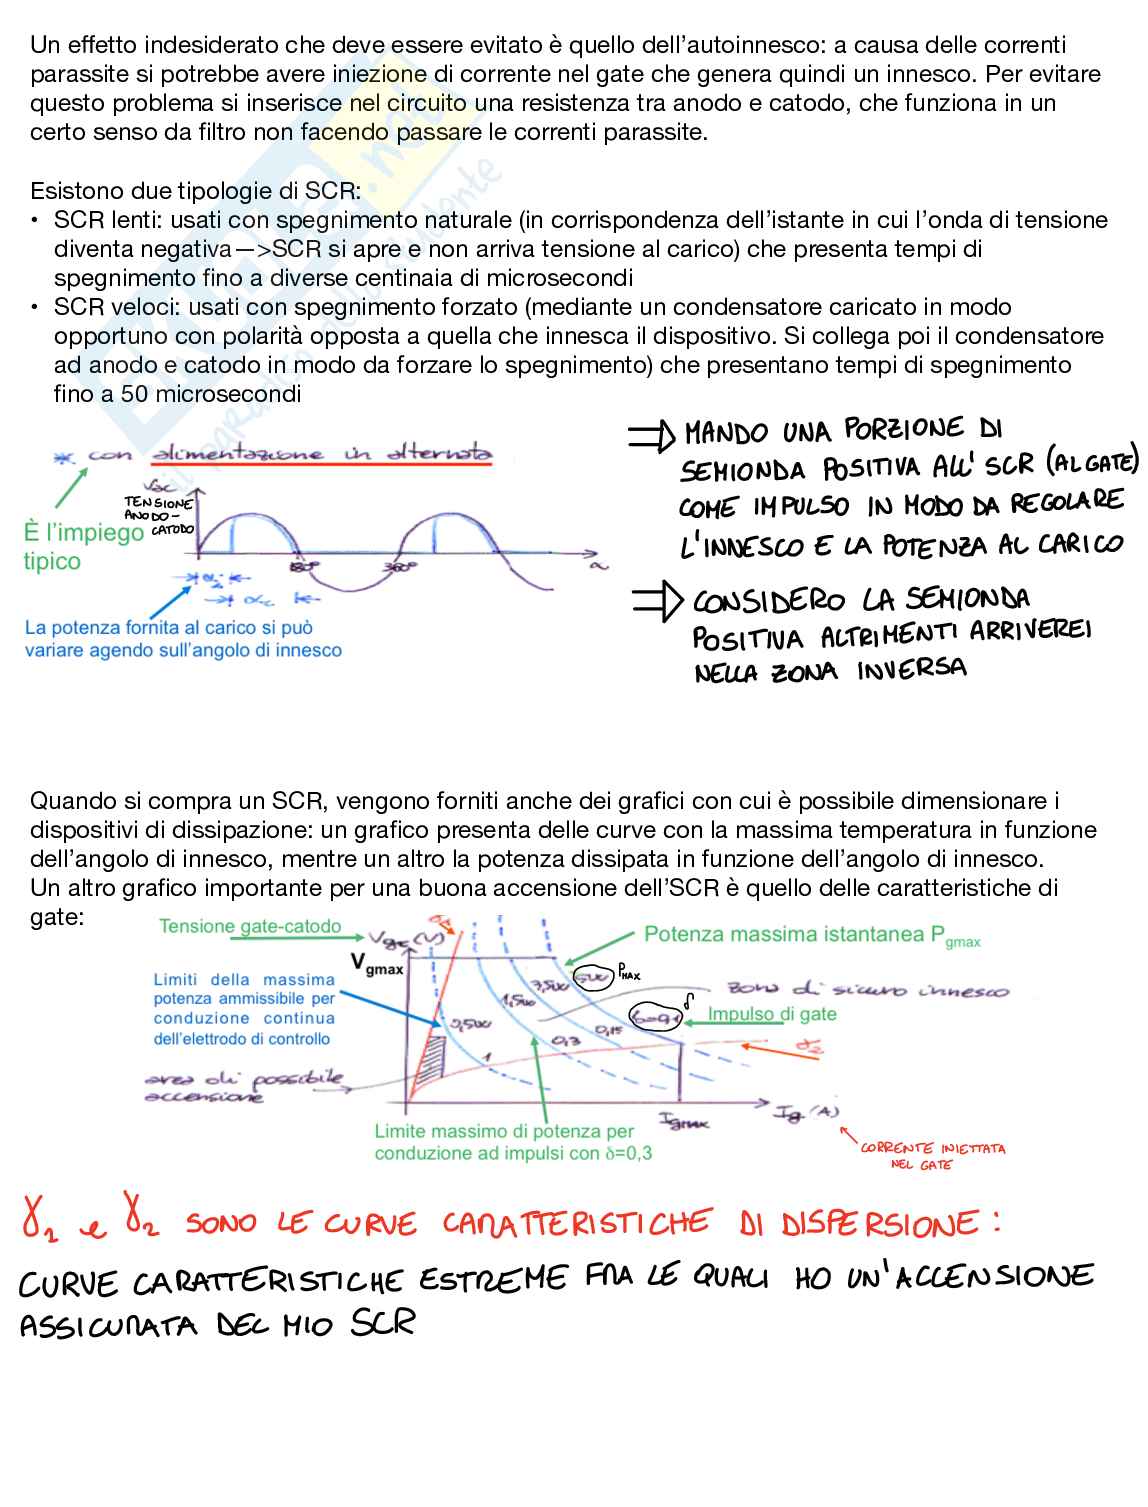 Un effetto indesiderato che deve essere evitato è quello dell'autoinnesco: a causa delle correnti
parassite si potrebbe avere iniezione di corrente nel gate che genera quindi un innesco. Per evitare
questo problema si inserisce nel circuito una resistenza tra anodo e catodo, che funziona in un
certo senso da filtro non facendo passare le correnti parassite.
Esistono due tipologie di SCR:
• SCR lenti: usati con spegnimento naturale (in corrispondenza dell'istante in cui l'onda di tensione
diventa negativa—>SCR si apre e non arriva tensione al carico) che presenta tempi di
spegnimento fino a diverse centinaia di microsecondi
• SCR veloci: usati con spegnimento forzato (mediante un condensatore caricato in modo
opportuno con polarità opposta a quella che innesca il dispositivo. Si collega poi il condensatore
ad anodo e catodo in modo da forzare lo spegnimento) che presentano tempi di spegnimento
fino a 50 microsecondi
* con alimentazione in alternata
Vac
TENSIONE
ANODO-
CATODO
È l'impiego
tipico
180° 360° α
αi
αc
La potenza fornita al carico si può
variare agendo sull'angolo di innesco
⇒ MANDO UNA PORZIONE DI
SEMIONDA POSITIVA ALL' SCR (AL GATE)
COME IMPULSO IN MODO DA REGOLARE
L'INNESCO E LA POTENZA AL CARICO
⇒ CONSIDERO LA SEMIONDA
POSITIVA ALTRIMENTI ARRIVEREI
NELLA ZONA INVERSA
Quando si compra un SCR, vengono forniti anche dei grafici con cui è possibile dimensionare i
dispositivi di dissipazione: un grafico presenta delle curve con la massima temperatura in funzione
dell'angolo di innesco, mentre un altro la potenza dissipata in funzione dell'angolo di innesco.
Un altro grafico importante per una buona accensione dell'SCR è quello delle caratteristiche di
gate:
Tensione gate-catodo
Vgc (V)
Vgmax
Potenza massima istantanea Pgmax
Limiti della massima
potenza ammissibile per
conduzione continua
dell'elettrodo di controllo
0,5W
1,5W
3,5W
5W
PMAX
zona di sicuro innesco
δ=0,1
δ
Impulso di gate
0,15
0,3
1
γ2
area di possibile
accensione
Igmax
Ig (A)
Limite massimo di potenza per
conduzione ad impulsi con δ=0,3
CORRENTE INIETTATA
NEL GATE
γ1 e γ2 SONO LE CURVE CARATTERISTICHE DI DISPERSIONE:
CURVE CARATTERISTICHE ESTREME FRA LE QUALI HO UN'ACCENSIONE
ASSICURATA DEL MIO SCR